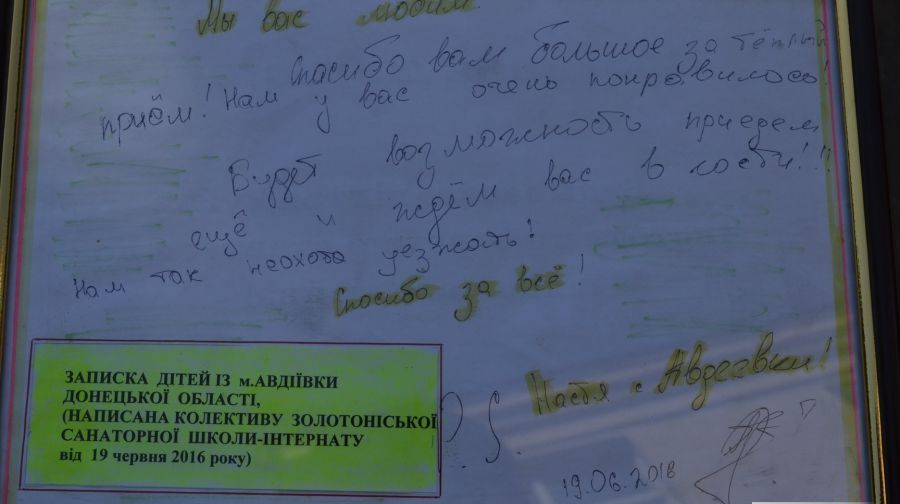 Мы вас любим
Спасибо вам большое за тёплый
приём! Нам у вас очень понравилось!
Будет возможность приедем
ещё и ждём вас в гости!!!
Нам так неохота уезжать!
Спасибо за всё!
Настя с Авдеевки!
P.S.
19.06.2016
ЗАПИСКА ДІТЕЙ ІЗ м.АВДІЇВКИ
ДОНЕЦЬКОЇ ОБЛАСТІ,
(НАПИСАНА КОЛЕКТИВУ ЗОЛОТОНІСЬКОЇ
САНАТОРНОЇ ШКОЛИ-ІНТЕРНАТУ
від 19 червня 2016 року)